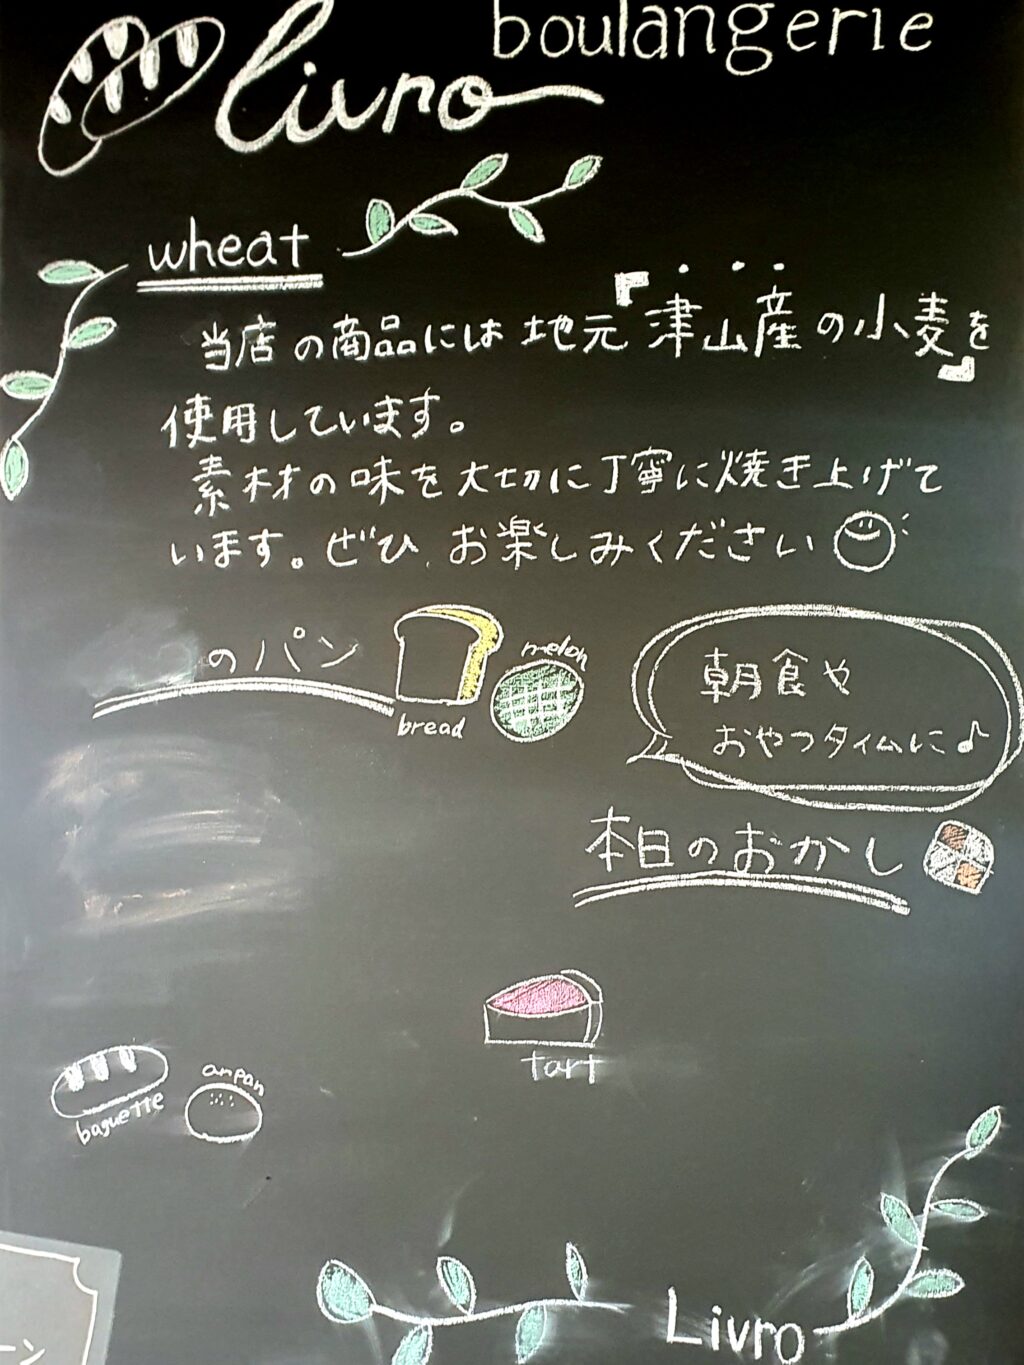 boulangerie
Livro
wheat
当店の商品には地元『津山産の小麦』を
使用しています。
素材の味を大切に丁寧に焼き上げて
います。ぜひ、お楽しみください
のパン
melon
bread
朝食や
おやつタイムに♪
本日のおかし
tart
baguette
anpan
Livro
ーン